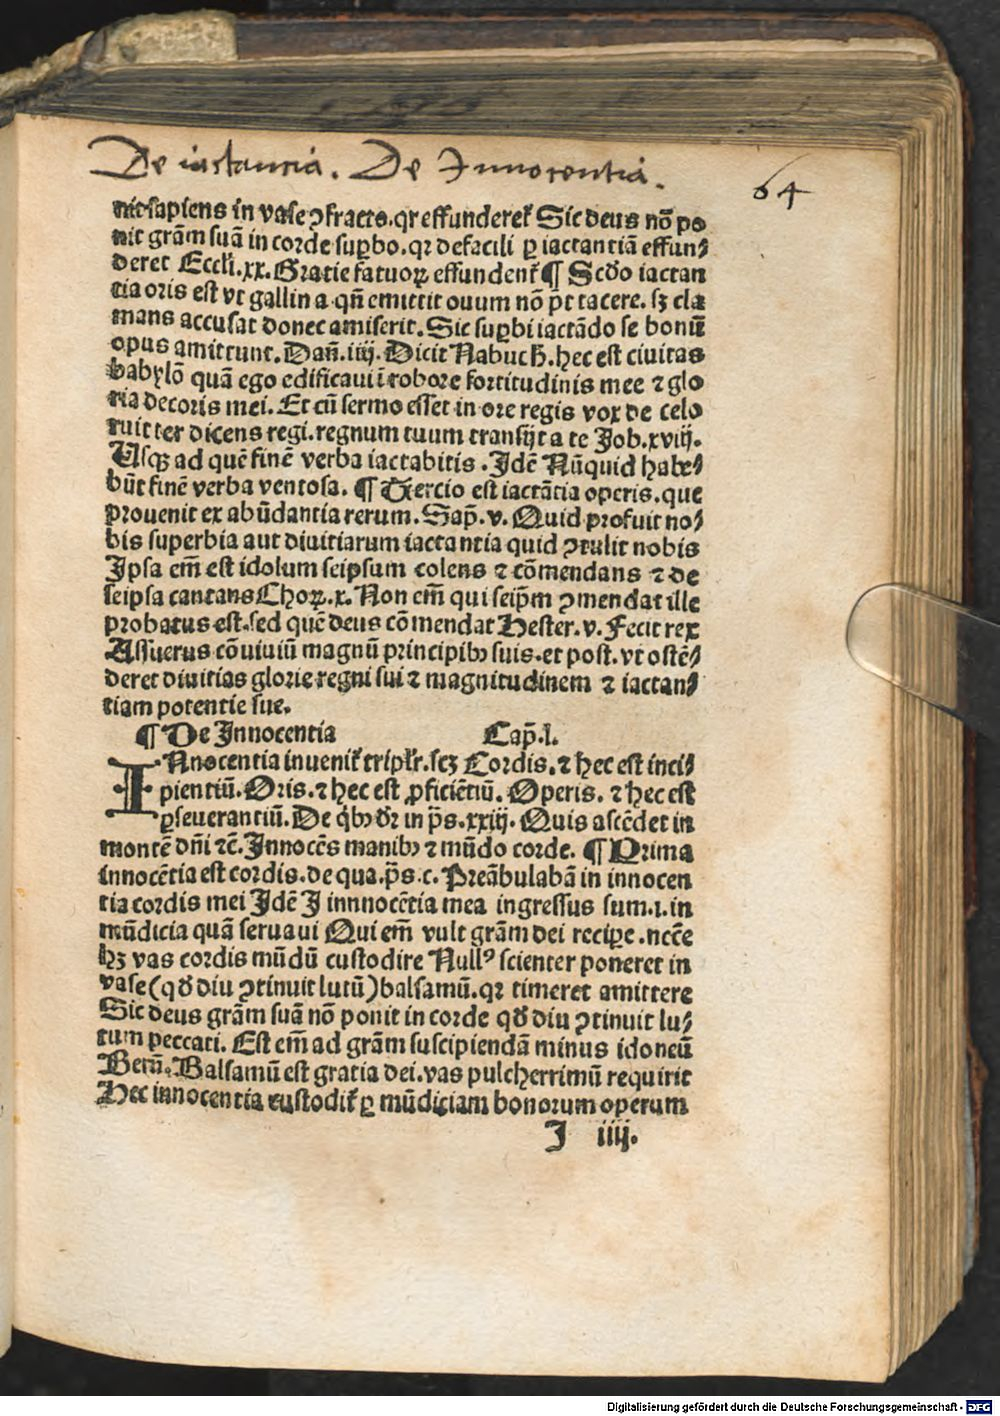 De iactancia. De Innocentia.
64
nit sapiens in vase ꝯfracto. qr effunderet᷑ Sic deus nō po
nit grām suā in corde suꝑbo. qꝛ defacili ꝑ iactantiā effun⸗
deret Eccłi. xx. Gratie fatuoꝝ effundent᷑ ¶ Scdo iactan
tia oris est vt gallina qn̄ emittit ouum nō pt tacere. sꝫ cla
mans accusat donec amiserit. Sic suꝑbi iactādo se bonū
opus amittunt. Dan̄. iiij. Dicit Nabuch. hec est ciuitas
babylō quā ego edificaui ī robore fortitudinis mee ⁊ glo
ria decoris mei. Et cū sermo esset in ore regis vox de celo
ruit ter dicens regi. regnum tuum transijt a te Job. xviij.
Usqꝫ ad quē finē verba iactabitis. Idē Nūquid habe⸗
būt finē verba ventosa. ¶ Tercio est iactātia operis. que
prouenit ex abūdantia rerum. Sap̄. v. Quid profuit no⸗
bis superbia aut diuitiarum iactantia quid ꝯtulit nobis
Ipsa em̄ est idolum seipsum colens ⁊ cōmendans ⁊ de
seipsa cantans Choꝝ. x. Non em̄ qui seip̄m ꝯmendat ille
probatus est. sed quē deus cōmendat Hester. v. Fecit rex
Assuerus cōuiuiū magnū principibꝫ suis. et post. vt ostē⸗
deret diuitias glorie regni sui ⁊ magnitudinem ⁊ iactan⸗
tiam potentie sue.
¶ De Innocentia Cap̄. l.
INnocentia inuenit᷑ tripłr. scꝫ Cordis. ⁊ hec est inci⸗
pientiū. Oris. ⁊ hec est ꝓficiētiū. Operis. ⁊ hec est
ꝑseuerantiū. De qͥbꝫ dr̄ in p̄s. xxiij. Quis ascēdet in
montē dn̄i ⁊c̄. Innocēs manibꝫ ⁊ mūdo corde. ¶ Prima
innocētia est cordis. de qua. p̄s. c. Preābulabā in innocen
tia cordis mei Idē I innnocētia mea ingressus sum. i. in
mūdicia quā seruaui Qui em̄ vult grām dei recipe. necē
hꝫ vas cordis mūdū custodire Nullꝰ scienter poneret in
vase (qd diu ꝯtinuit lutū) balsamū. qꝛ timeret amittere
Sic deus grām suā nō ponit in corde qd diu ꝯtinuit lu⸗
tum peccati. Est em̄ ad grām suscipiendā minus idoneū
Bern̄. Balsamū est gratia dei. vas pulcherrimū requirit
Hec innocentia custodit᷑ ꝑ mūdiciam bonorum operum
I iiij.
Digitalisierung gefördert durch die Deutsche Forschungsgemeinschaft - DFG